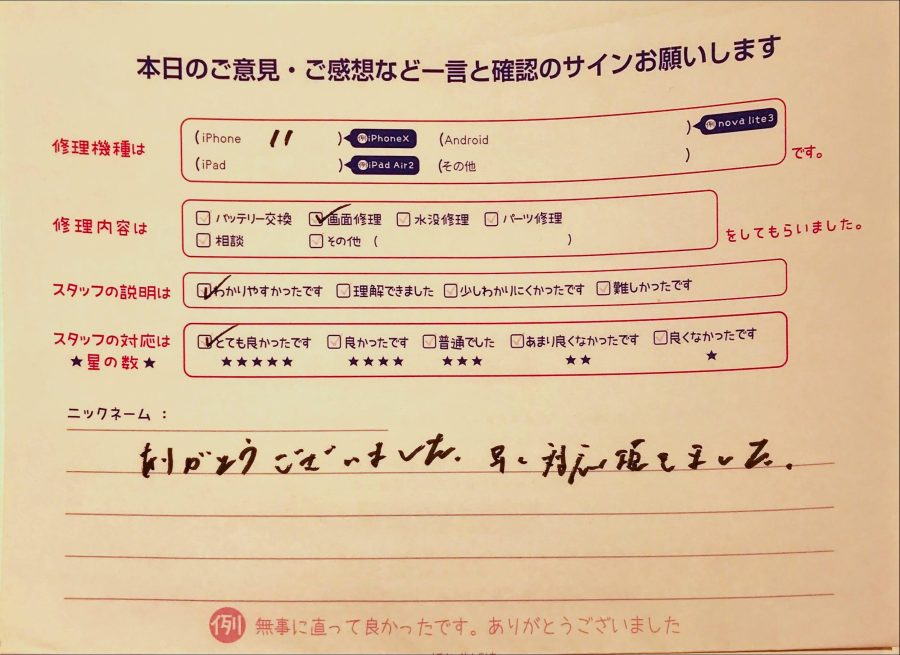 本日のご意見・ご感想など一言と確認のサインお願いします
修理機種は (iPhone 11 ) 例iPhoneX (Android ) 例nova lite3
(iPad ) 例iPad Air2 (その他 ) です。
修理内容は バッテリー交換 画面修理 水没修理 パーツ修理
相談 その他 ( ) をしてもらいました。
スタッフの説明は わかりやすかったです 理解できました 少しわかりにくかったです 難しかったです
スタッフの対応は とても良かったです 良かったです 普通でした あまり良くなかったです 良くなかったです
★星の数★ ★★★★★ ★★★★ ★★★ ★★ ★
ニックネーム：
ありがとうございました。早く対応頂きました。
例 無事に直って良かったです。ありがとうございました